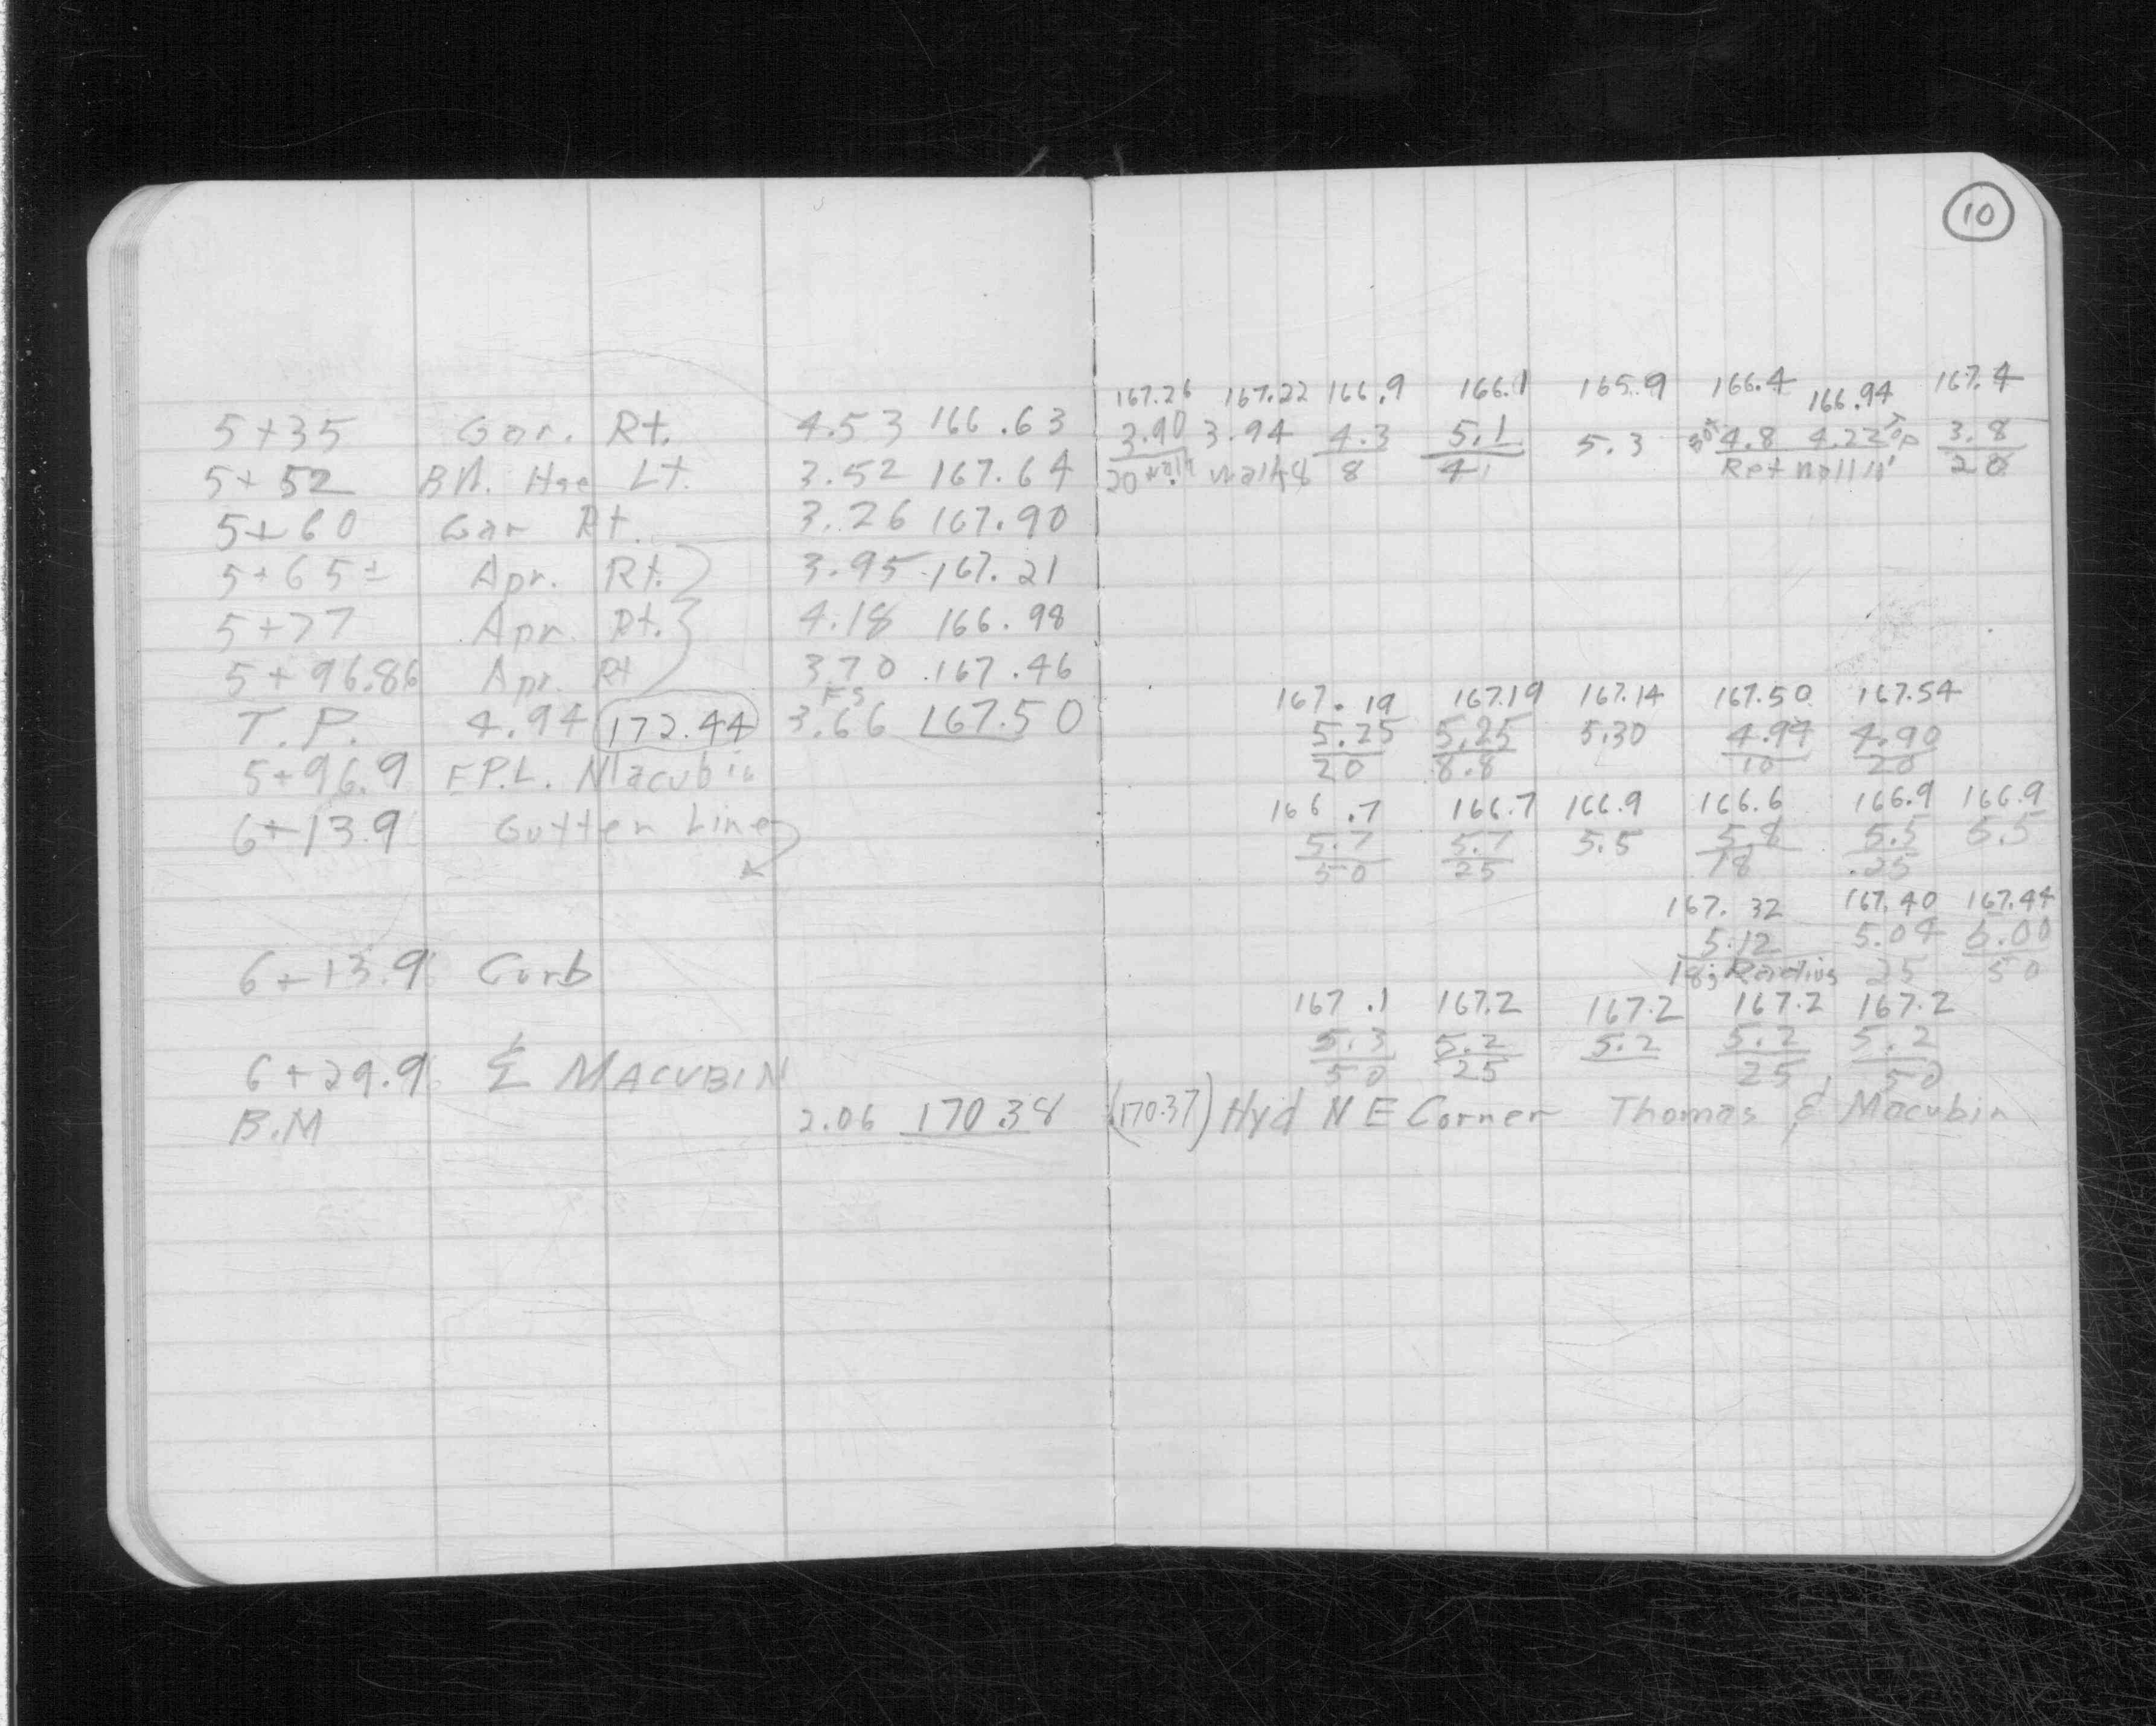 10
167.26 167.22 166.9 166.1 165.9 166.4 166.94 167.4
5+35 Gar. Rt. 4.53 166.63 3.90 3.94 4.3 5.1 5.3 Bot 4.8 4.22 Top 3.8
5+52 Bd. Hse Lt. 3.52 167.64 20 walk walk 8 8 41 Ret Wall 10' 20
5+60 Gar Rt. 3.26 167.90
5+65± Apr. Rt. 3.95 167.21
5+77 Apr. Rt. 4.18 166.98
5+96.86 Apr. Rt 3.70 167.46
FS 167.19 167.19 167.14 167.50 167.54
T.P. 4.94 172.44 3.66 167.50 5.25 5.25 5.30 4.94 4.90
5+96.9 F.P.L. Macubin 20 8.8 10 20
166.7 166.7 166.9 166.6 166.9 166.9
6+13.9 Gutter Line 5.7 5.7 5.5 5.8 5.5 5.5
50 25 18 25
167.32 167.40 167.44
5.12 5.04 5.00
6+13.9 Curb 18; Radius 25 50
167.1 167.2 167.2 167.2 167.2
6+29.9 ₵ MACUBIN 5.3 5.2 5.2 5.2 5.2
50 25 25 50
B.M 2.06 170.38 (170.37) Hyd N E Corner Thomas & Macubin